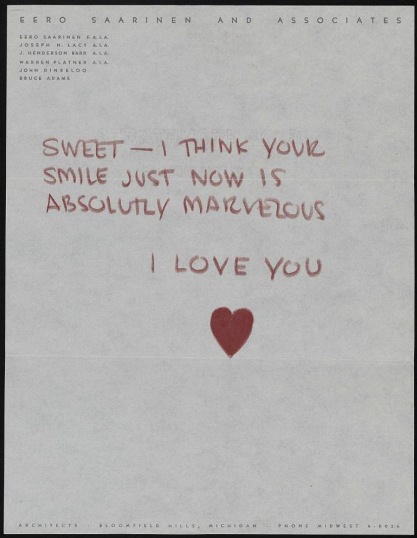 EERO SAARINEN AND ASSOCIATES
EERO SAARINEN F.A.I.A.
JOSEPH N. LACY A.I.A.
J. HENDERSON BARR A.I.A.
WARREN PLATNER A.I.A.
JOHN DINKELOO
BRUCE ADAMS
SWEET — I THINK YOUR
SMILE JUST NOW IS
ABSOLUTLY MARVELOUS
I LOVE YOU
ARCHITECTS · BLOOMFIELD HILLS, MICHIGAN PHONE MIDWEST